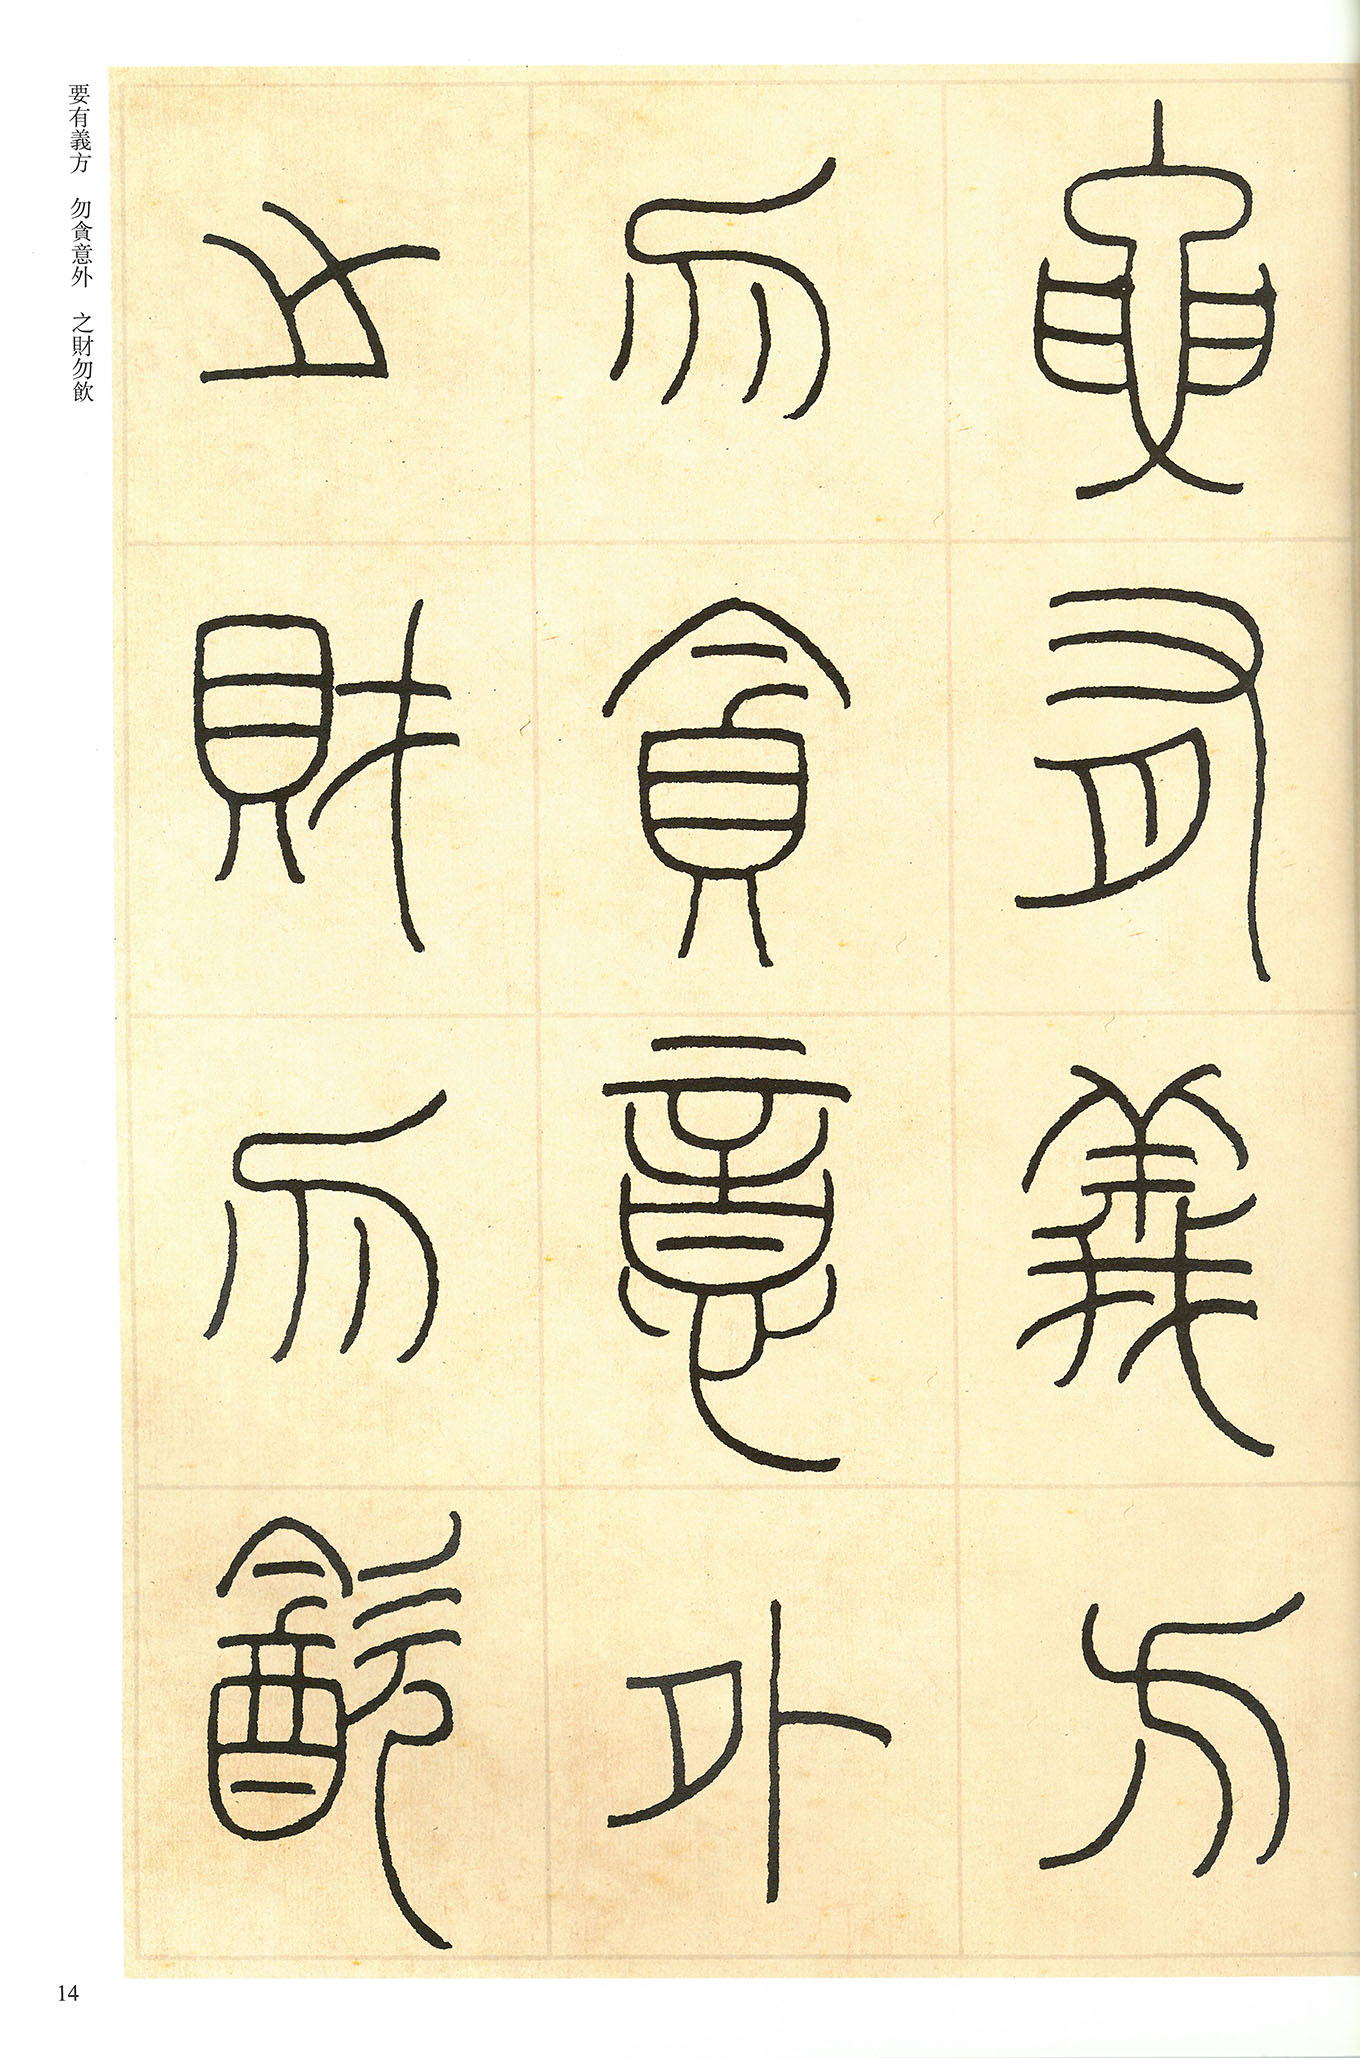 要有義方
勿貪意外
之財勿飲
要有義方　勿貪意外　之財勿飲
14